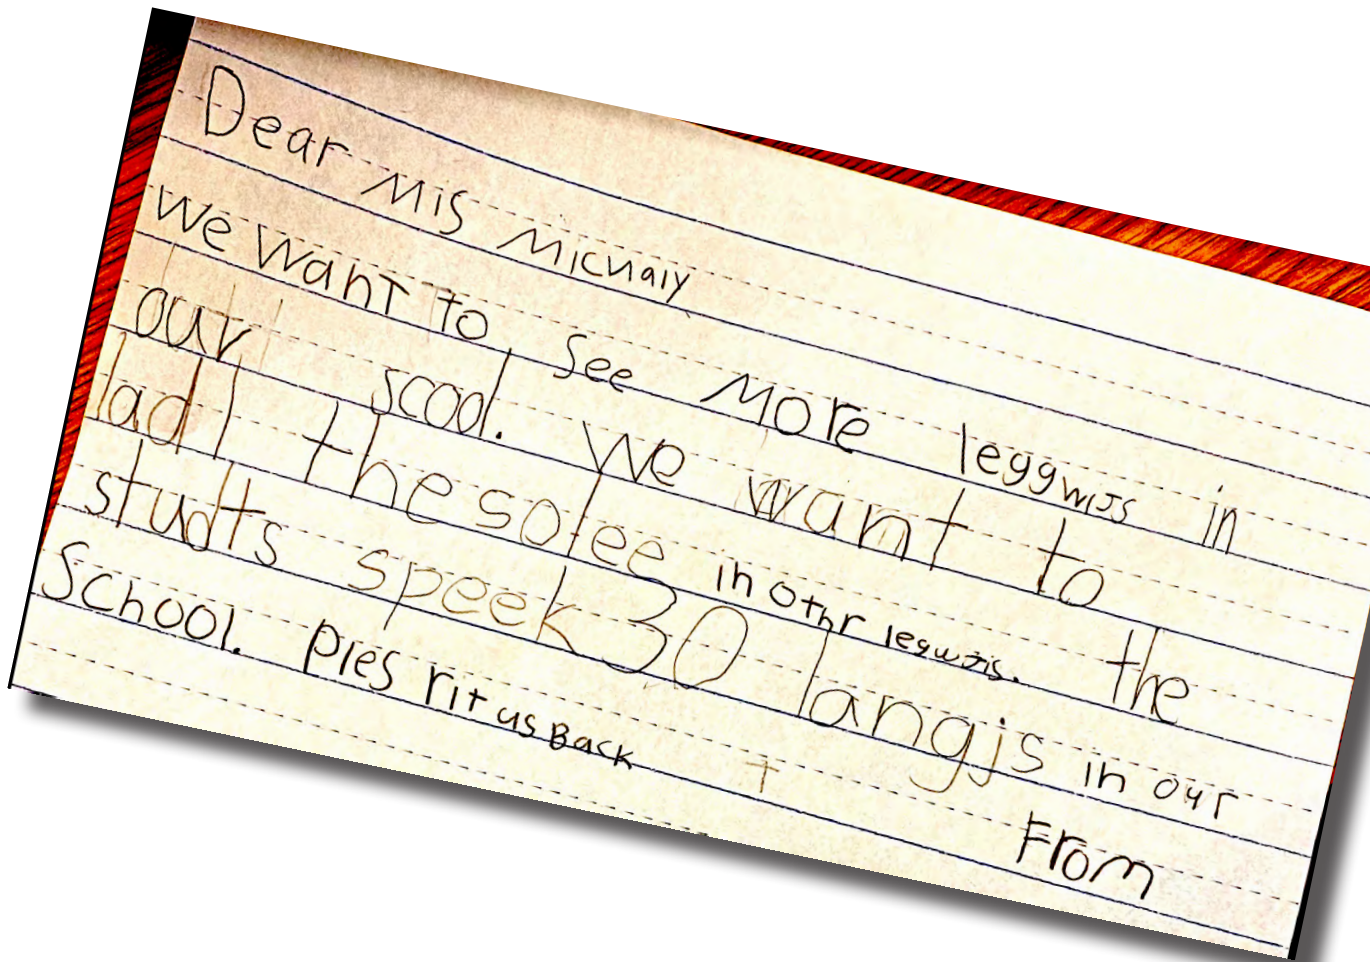 Dear Mis Micnaly
We want to see More leggwijs in
our scool. We want to
ladl the solee in othr legwjis. the
studts speek 30 langjs in our
School. ples rit us Back From